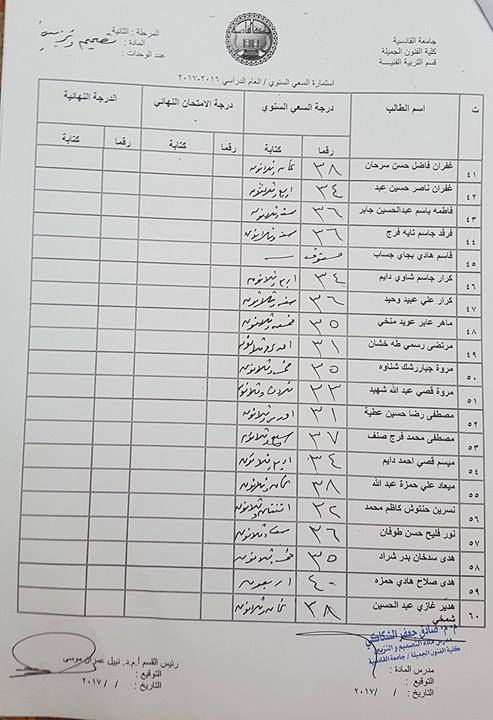 جامعة القادسية
كلية الفنون الجميلة
قسم التربية الفنيـــة
المرحلة : الثانية
المادة : تصميم وتزيين
عدد الوحدات :
استمارة السعي السنوي / العام الدراسي ٢٠١٦-٢٠١٧
ت اسم الطالب درجة السعي السنوي درجة الامتحان النهائي الدرجة النهائية
رقما كتابة رقما كتابة رقما كتابة
٤١ غفران فاضل حسن سرحان ٣٨ ثمان وثلاثون
٤٢ غفران ناصر حسين عبد ٣٤ اربع وثلاثون
٤٣ فاطمه باسم عبدالحسين جابر ٣٦ ستة وثلاثون
٤٤ فرقد جاسم تايه فرج ٣٦ ستة وثلاثون
٤٥ قاسم هادي بجاي جساب
٤٦ كرار جاسم شاوي دايم ٣٤ اربع وثلاثون
٤٧ كرار علي عبيد وحيد ٣٦ ستة وثلاثون
٤٨ ماهر عابر عويد منخي ٣٥ خمسة وثلاثون
٤٩ مرتضى رسمي طه خشان ٣١ احدى وثلاثون
٥٠ مروة جباررشك شناوه ٣٥ خمس وثلاثون
٥١ مروة قصي عبد الله شهيد ٣٣ ثلاث وثلاثون
٥٢ مصطفى رضا حسين عطية ٣١ احدى وثلاثون
٥٣ مصطفى محمد فرج صنف ٣٧ سبع وثلاثون
٥٤ ميسم قصي احمد دايم ٣٤ اربع وثلاثون
٥٥ ميعاد علي حمزة عبد الله ٣٨ ثمان وثلاثون
٥٦ نسرين حنتوش كاظم محمد ٣٢ اثنتان وثلاثون
٥٧ نور فليح حسن طوفان ٣٦ ستة وثلاثون
٥٨ هدى سدخان بدر شراد ٣٥ خمس وثلاثون
٥٩ هدى صلاح هادي حمزه ٤٠ اربعون
٦٠ هدير غازي عبد الحسين شمخي ٣٨ ثمان وثلاثون
م.م. صادق جعفر
مدرس مادة التصميم والتزيين
كلية الفنون الجميلة / جامعة القادسية
مدرس المادة :
التوقيع :
التاريخ : / /٢٠١٧
رئيس القسم أ.م.د. نبيل عمران موسى
التوقيع :
التاريخ : / / ٢٠١٧